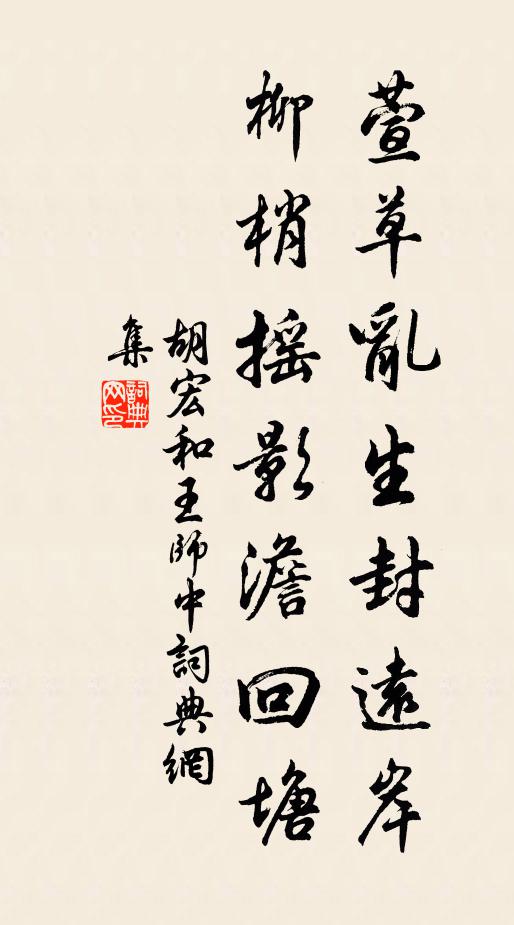 萱草亂生封遠岸
柳梢搖影澹回塘
胡宏和王師中詞典網
集
詞典網印